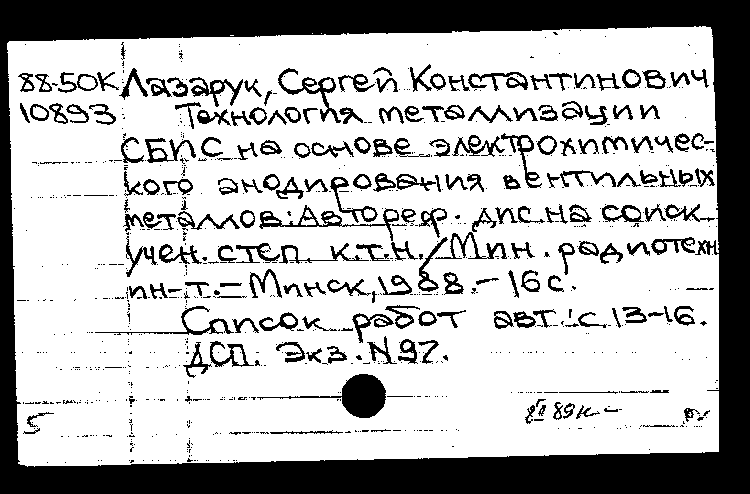 88-5OK Лазарук, Сергей Константинович
10893 Технология металлизации
СБИС на основе электрохимичес-
кого анодирования вентильных
металлов: Автореф. дис. на соиск.
учен. степ. к.т.н. / Мин. радиотехн.
ин-т. - Минск, 1988. - 16 с.
Список работ авт.: с. 13-16.
ДСП. Экз. N 97.
5